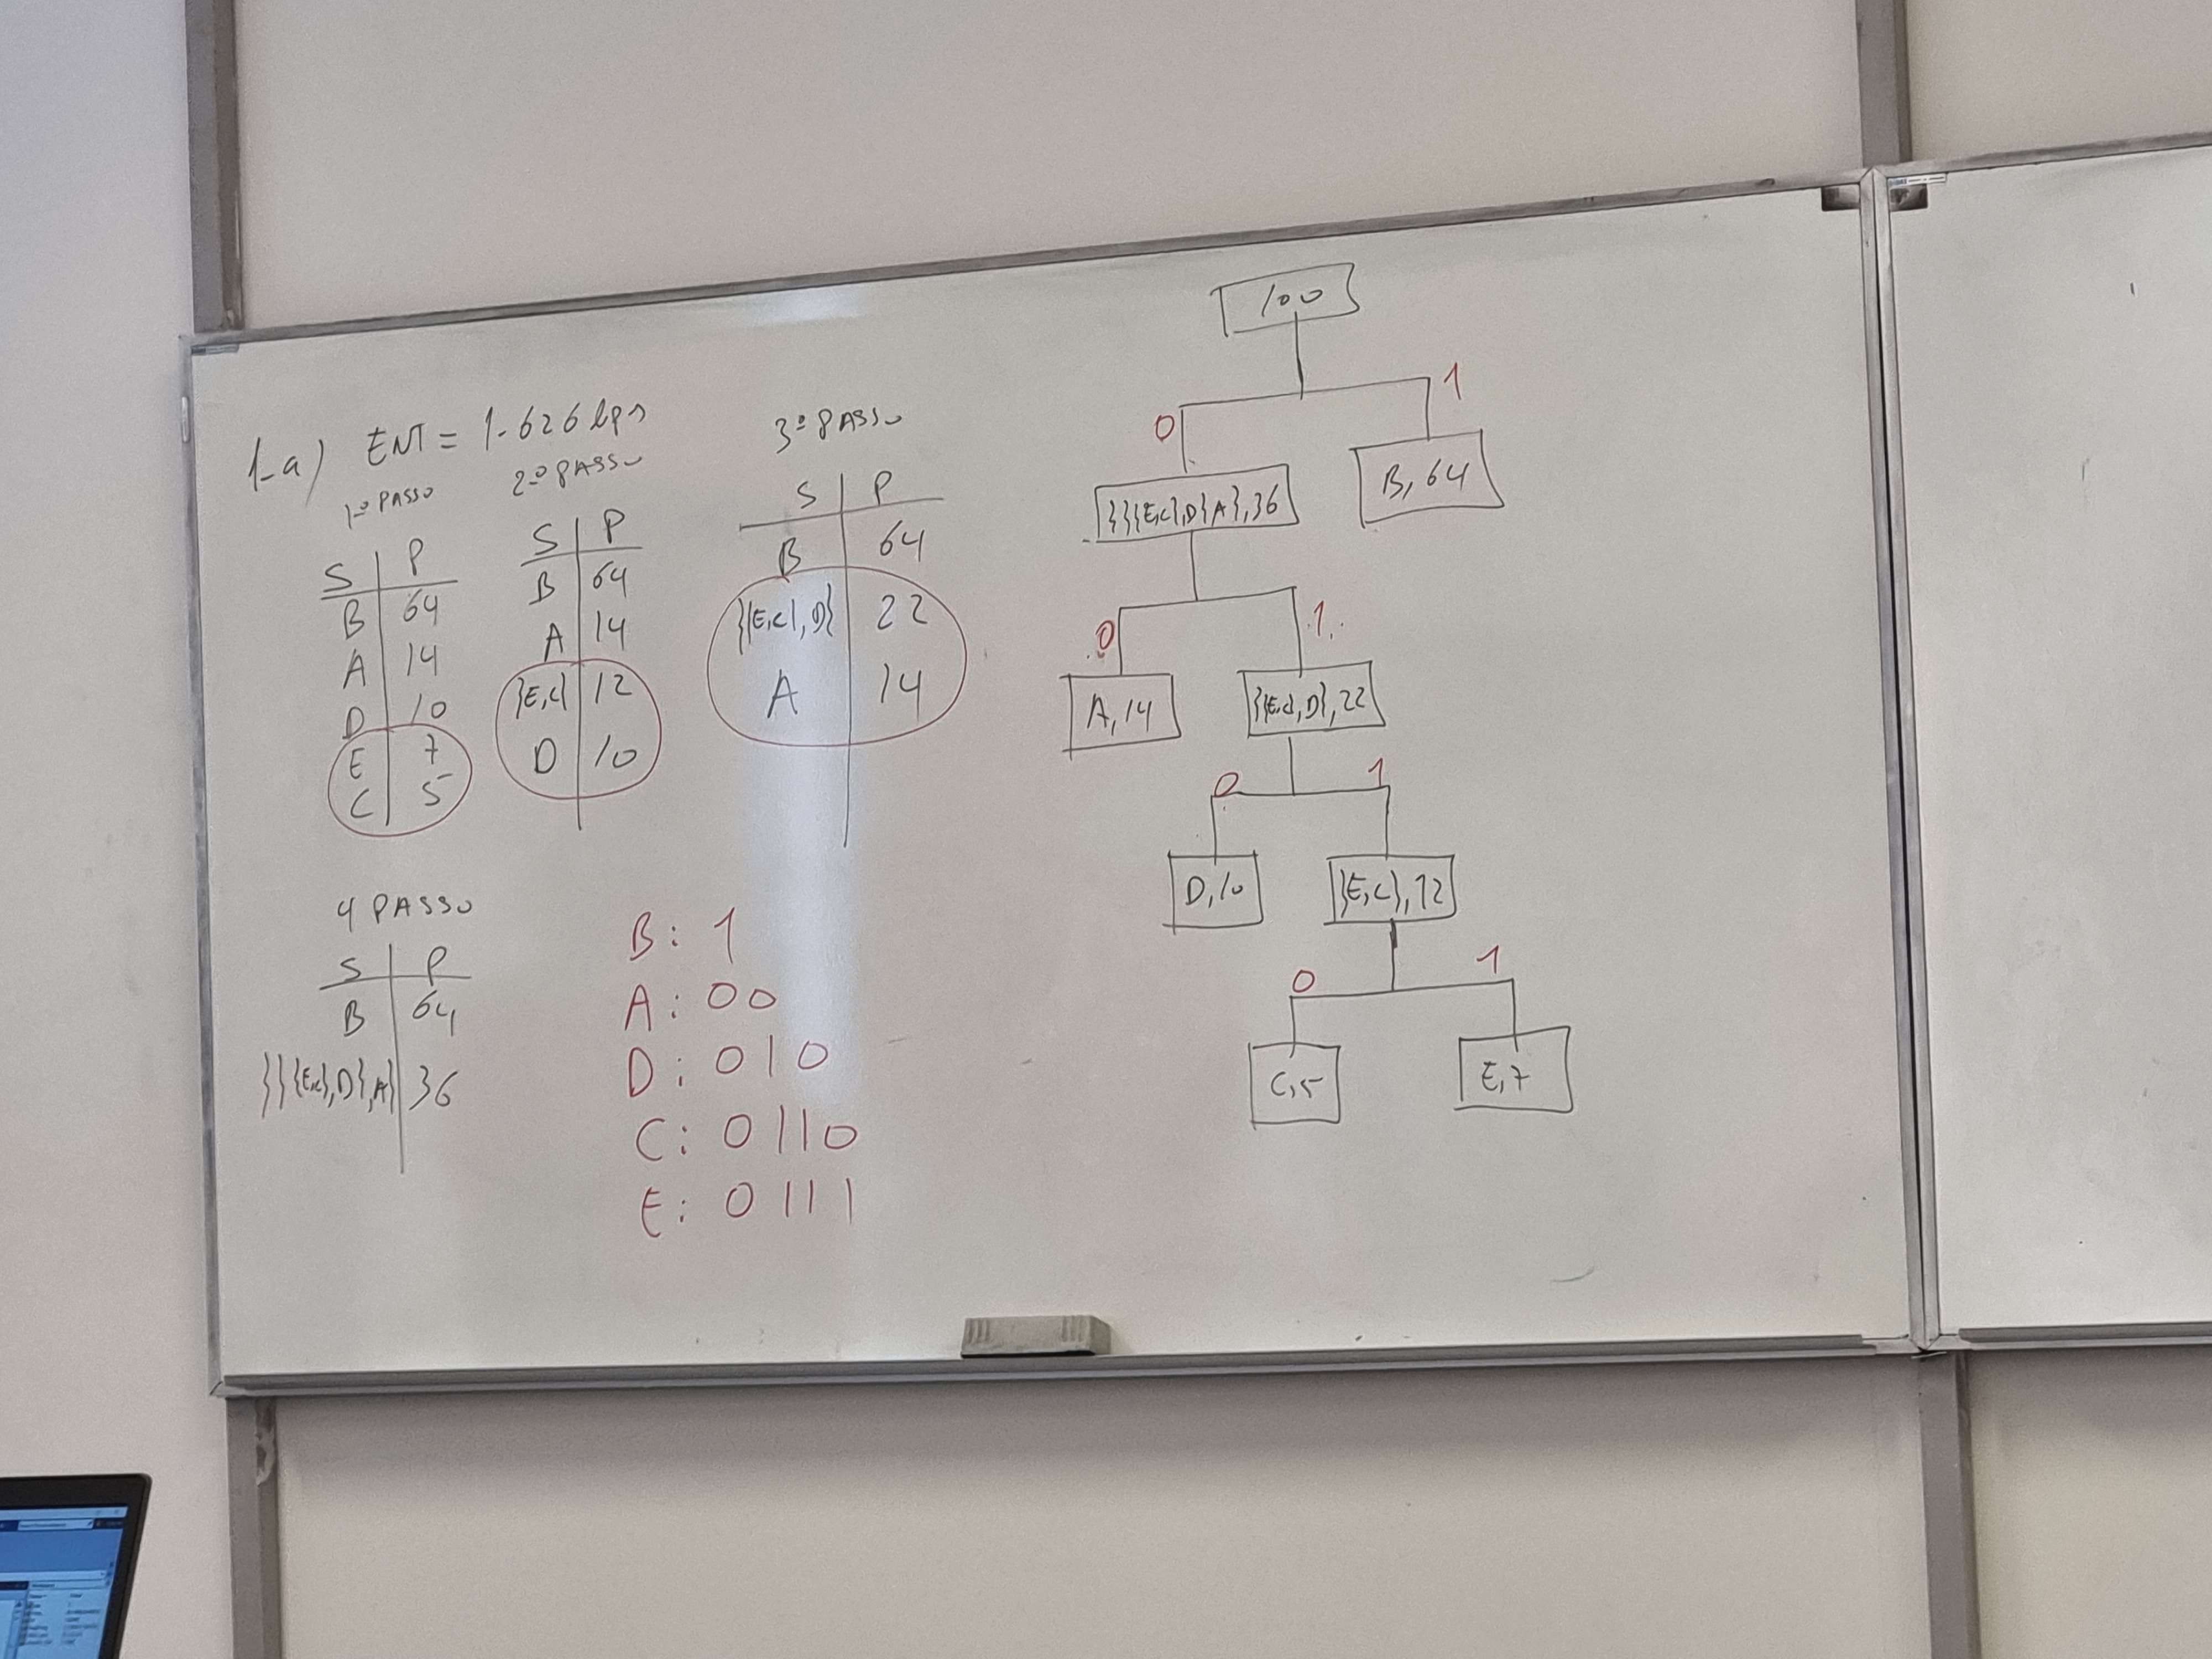 1-a) ENT = 1.626 bps
1º PASSO
S P
B 64
A 14
D 10
E 7
C 5
2º PASSO
S P
B 64
A 14
{E,C} 12
D 10
3º PASSO
S P
B 64
{{E,C},D} 22
A 14
4 PASSO
S P
B 64
{{{E,C},D},A} 36
B: 1
A: 00
D: 010
C: 0110
E: 0111
100
0 1
{{{E,C},D}A},36
B, 64
0 1
A, 14
{{E,C},D},22
0 1
D,10
{E,C},12
0 1
C,5
E,7